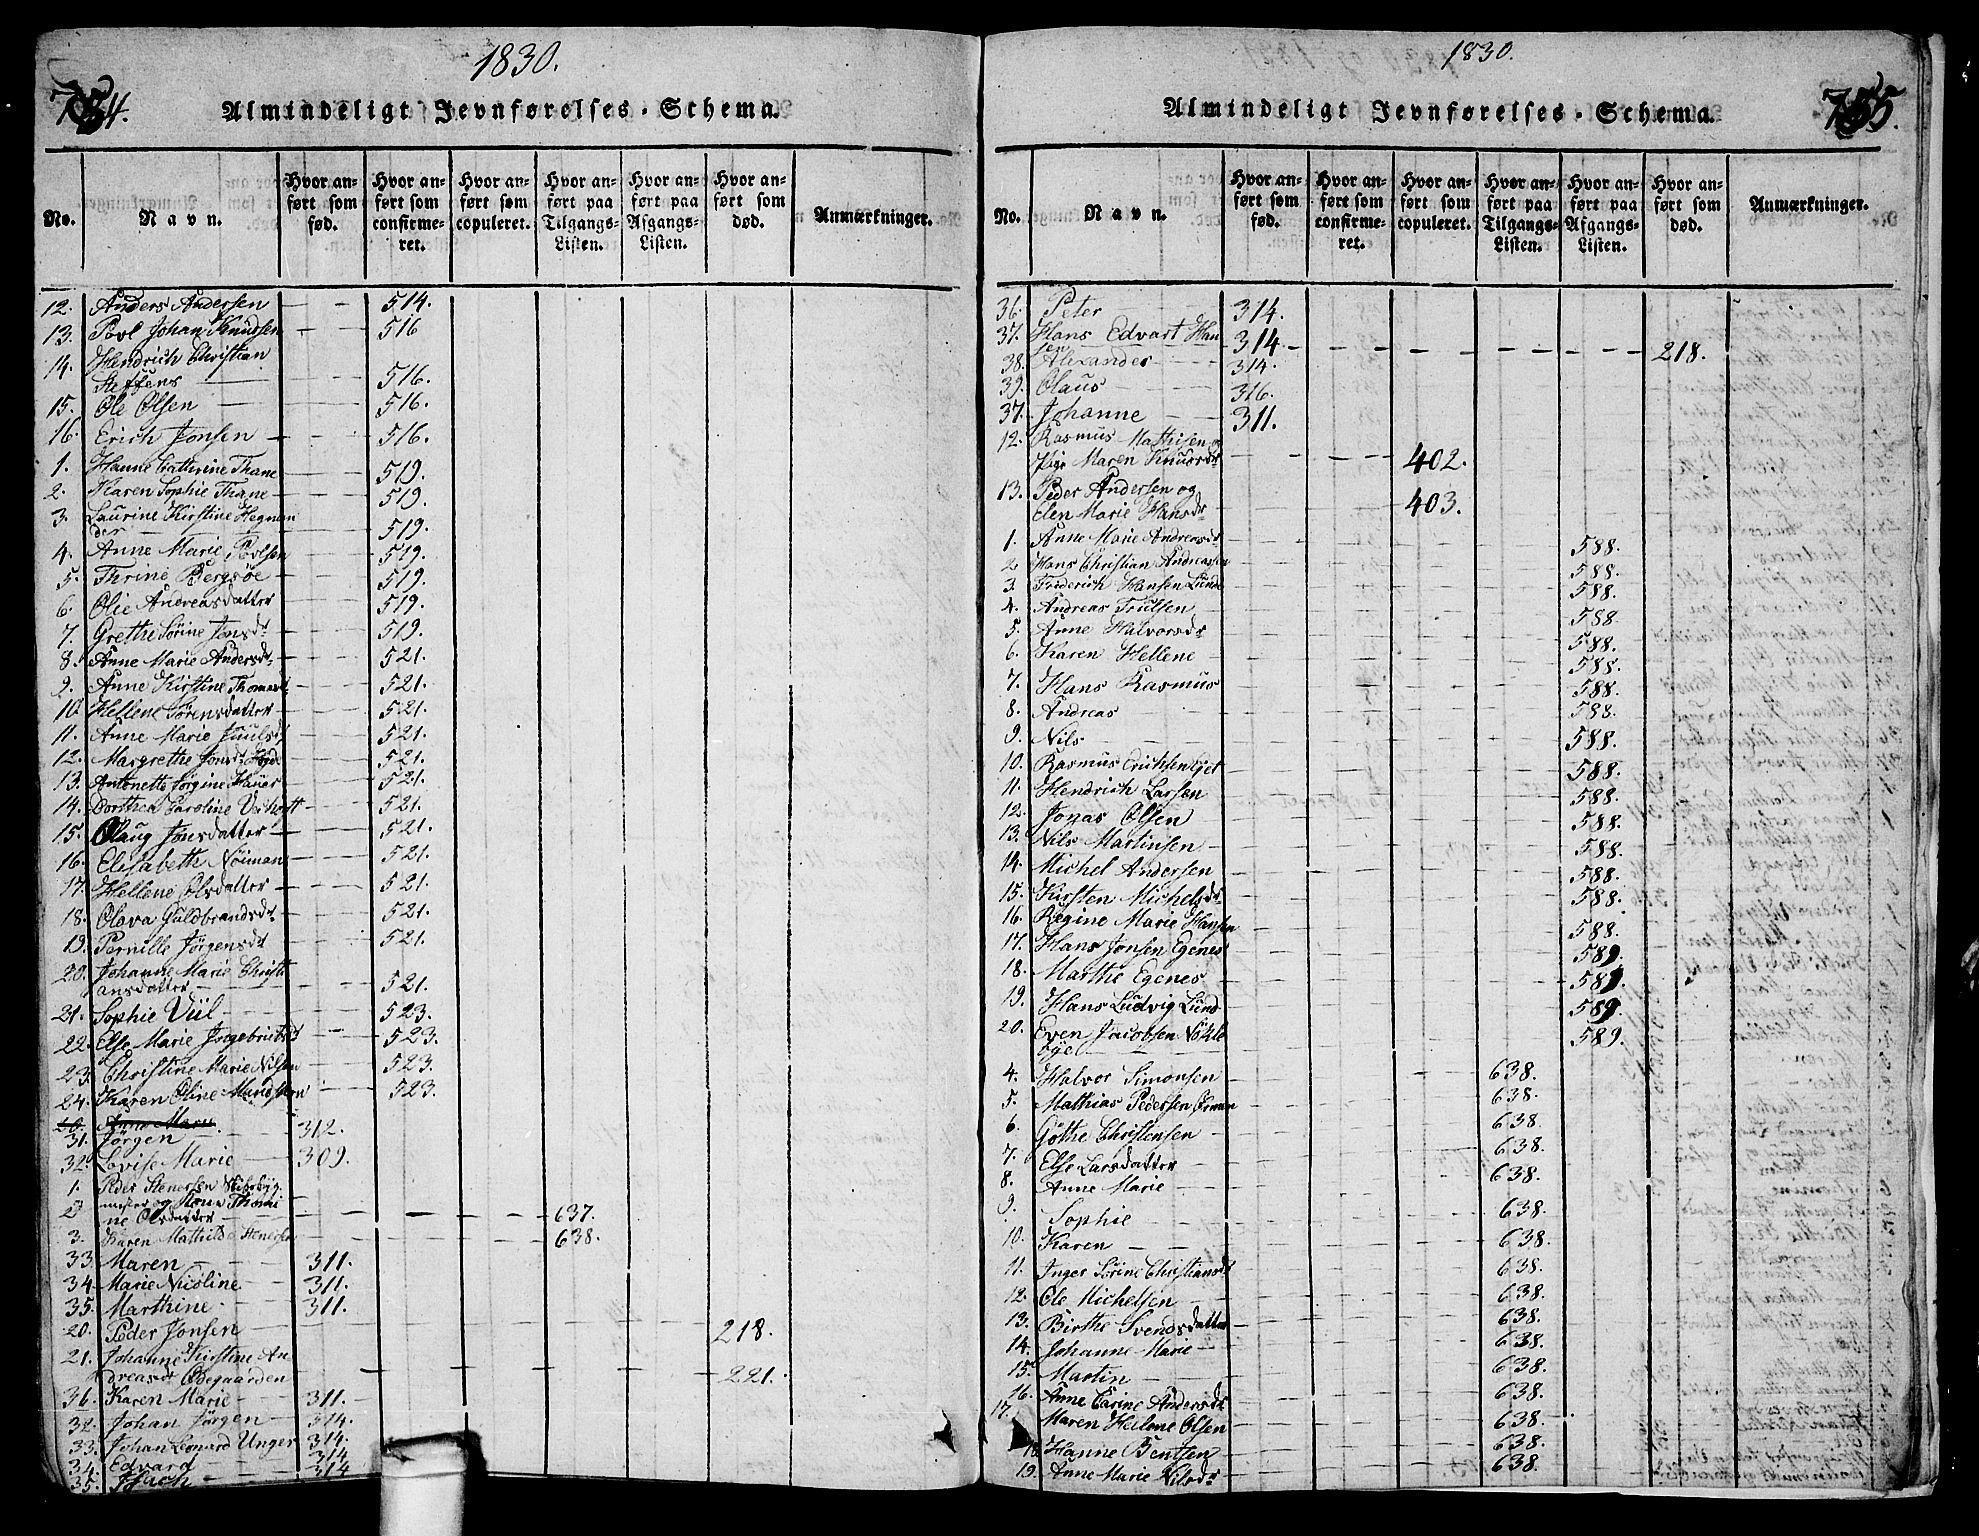 1830.
754.
Almindeligt Jevnførelses-Schema.
No.
Navn.
Hvor anført som fød.
Hvor anført som confirmeret.
Hvor anført som copuleret.
Hvor anført paa Tilgangs-Listen.
Hvor anført paa Afgangs-Listen.
Hvor anført som død.
Anmærkninger.
12. Anders Andersen 514.
13. Povl Johan Knudsen 516
14. Hendrich Christian
Steffens 516.
15. Ole Olsen 516.
16. Erich Jonsen 516.
1. Hanne Cathrine Thane 519.
2. Karen Sophie Thane 519.
3. Laurine Kirstine Hegnan
der 519.
4. Anne Marie Povlsen 519.
5. Thrine Bergsöe 519.
6. Olie Andreasdatter 519.
7. Grethe Sörine Jonsdr 519.
8. Anne Marie Andersdr 521.
9. Anne Kirstine Thomasd 521.
10. Hellene Sörensdatter 521.
11. Anne Marie Juulsd 521.
12. Margrethe Jonsdr 521.
13. Antonette Jörgine Hauer 521.
14. Dorthea Caroline 521.
15. Olaug Jonsdatter 521.
16. Elisabeth Nöiman 521.
17. Hellene Olsdatter 521.
18. Olava Guldbrandsdr 521.
19. Pernille Jörgensdr 521.
20. Johanne Marie Christi
ansdatter 521.
21. Sophie Viil 523.
22. Else Marie Ingebrigtsd 523.
23. Christine Marie Nilsen 523.
24. Karen Oline 523.
31. Jörgen 312.
32. Lovise Marie 309.
1. Peder Stenersen
2 ne Olsdatter 637.
3. Karen Mathilde Stenersen 638.
33. Maren 311.
34. Marie Nicoline 311.
35. Marthine 311.
20. Peder Jonsen 218.
21. Johanne Kirstine An
dreasdr Ödegaarden 221.
36. Karen Marie 311.
32. Johan Jörgen 314.
33. Johan Leonard Unger 314.
34. Edvard 314
35. 314
1830.
755.
Almindeligt Jevnførelses-Schema.
No.
Navn.
Hvor anført som fød.
Hvor anført som confirmeret.
Hvor anført som copuleret.
Hvor anført paa Tilgangs-Listen.
Hvor anført paa Afgangs-Listen.
Hvor anført som død.
Anmærkninger.
36. Peter 314.
37. Hans Edvart Han
sen 314 218.
38. Alexander 314.
39. Olaus 316.
37. Johanne 311.
12. Rasmus Mathisen og
Pige Maren Knudsdr 402.
13. Peder Andersen og
Elen Marie Hansdr 403.
1. Anne Marie Andreasdr 588.
2. Hans Christian Andreassen 588.
3. Friderich Hansen Lunde 588.
4. Andreas Trulsen 588
5. Anne Halvorsdr 588.
6. Karen Hellene 588.
7. Hans Rasmus 588.
8. Andreas 588.
9. Nils 588.
10. Rasmus Erichsen 588.
11. Hendrich Larsen 588.
12. Jonas Olsen 588.
13. Nils Martinsen 588.
14. Michel Andersen 588.
15. Kirsten Michelsdr 588.
16. Regine Marie Hansen 588.
17. Hans Jonsen Egenes 589.
18. Marthe Egenes 589.
19. Hans Ludvig Lund 589.
20. Even Jacobsen Nökle
öÿet 589.
4. Halvor Simonsen 638.
5. Mathias Pedersen 638.
6. Göthe Christensen 638.
7. Else Larsdatter 638.
8. Anne Marie 638.
9. Sophie 638.
10. Karen 638.
11. Inger Sörine Christiansdr 638.
12. Ole Michelsen 638.
13. Birthe Svendsdatter 638.
14. Johanne Marie 638.
15. Martin 638.
16. Anne Carine Andersdr 638.
17. Maren Helene Olsen 638.
18 Hanne Bentsen 638.
19. Anne Marie Nilsdr 638.